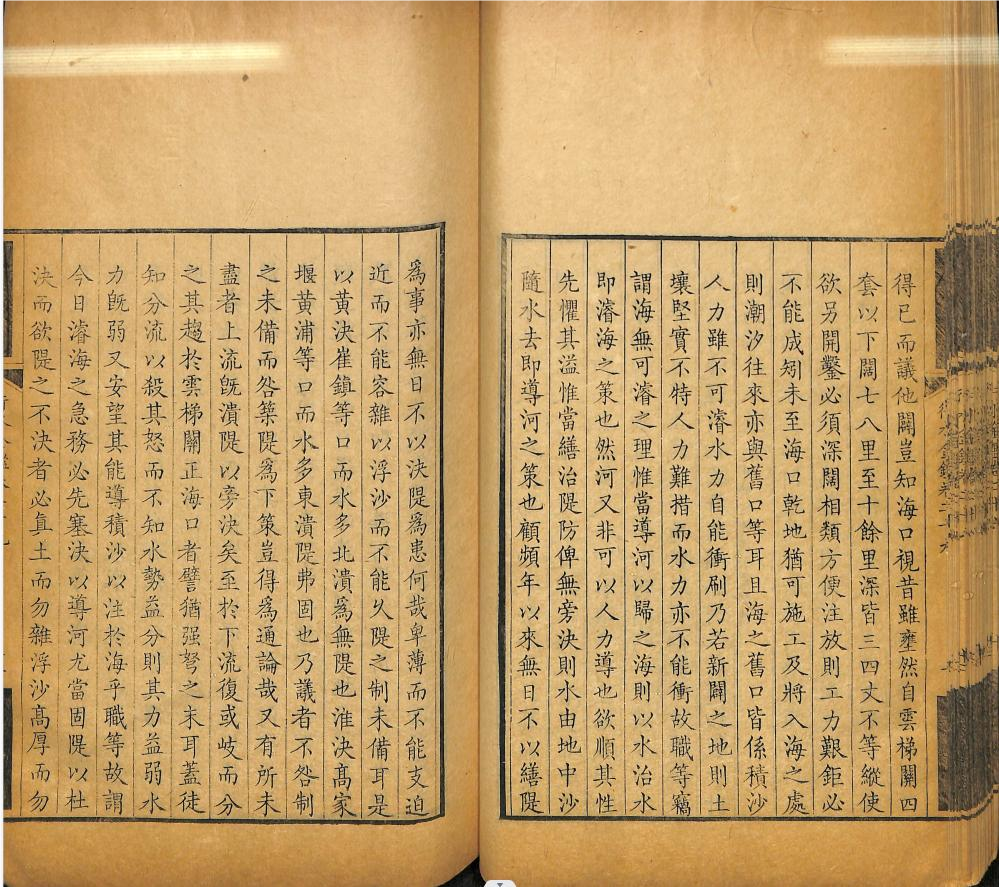 得已而議他闢豈知海口視昔雖壅然自雲梯關四
套以下闊七八里至十餘里深皆三四丈不等縱使
欲另開鑿必須深闊相類方便注放則工力艱鉅必
不能成矧未至海口乾地猶可施工及將入海之處
則潮汐往來亦與舊口等耳且海之舊口皆係積沙
人力雖不可濬水力自能衝刷乃若新闢之地則土
壤堅實不特人力難措而水力亦不能衝故職等竊
謂海無可濬之理惟當導河以歸之海則以水治水
即濬海之策也然河又非可以人力導也欲順其性
先懼其溢惟當繕治隄防俾無旁決則水由地中沙
隨水去即導河之策也顧頻年以來無日不以繕隄
為事亦無日不以決隄為患何哉卑薄而不能支迫
近而不能容雜以浮沙而不能久隄之制未備耳是
以黃決崔鎮等口而水多北潰為無隄也淮決高家
堰黃浦等口而水多東潰隄弗固也乃議者不咎制
之未備而咎築隄為下策豈得為通論哉又有所未
盡者上流旣潰隄以旁決矣至於下流復或岐而分
之其趨於雲梯關正海口者譬猶强弩之末耳蓋徒
知分流以殺其怒而不知水勢益分則其力益弱水
力旣弱又安望其能導積沙以注於海乎職等故謂
今日濬海之急務必先塞決以導河尤當固隄以杜
決而欲隄之不決者必真土而勿雜浮沙高厚而勿